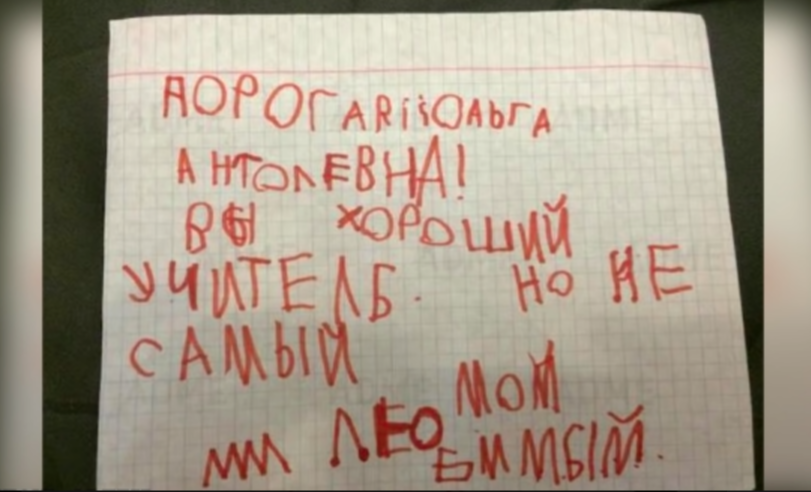 ДОРОГАЯ ОЛЬГА
АНТОЛЕВНА!
ВЫ ХОРОШИЙ
УЧИТЕЛЬ. НО НЕ
САМЫЙ
МОЙ
ЛЕО БИМЫЙ.